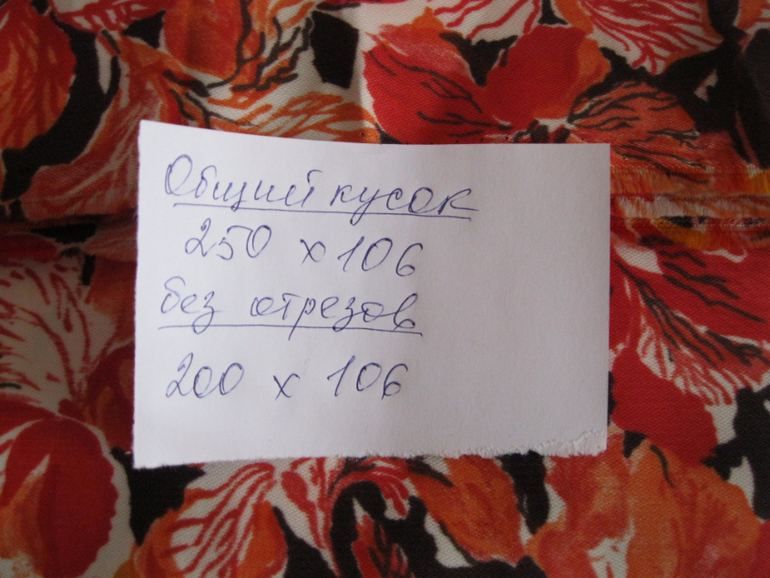 Общий кусок
250 х 106
без отрезов
200 х 106